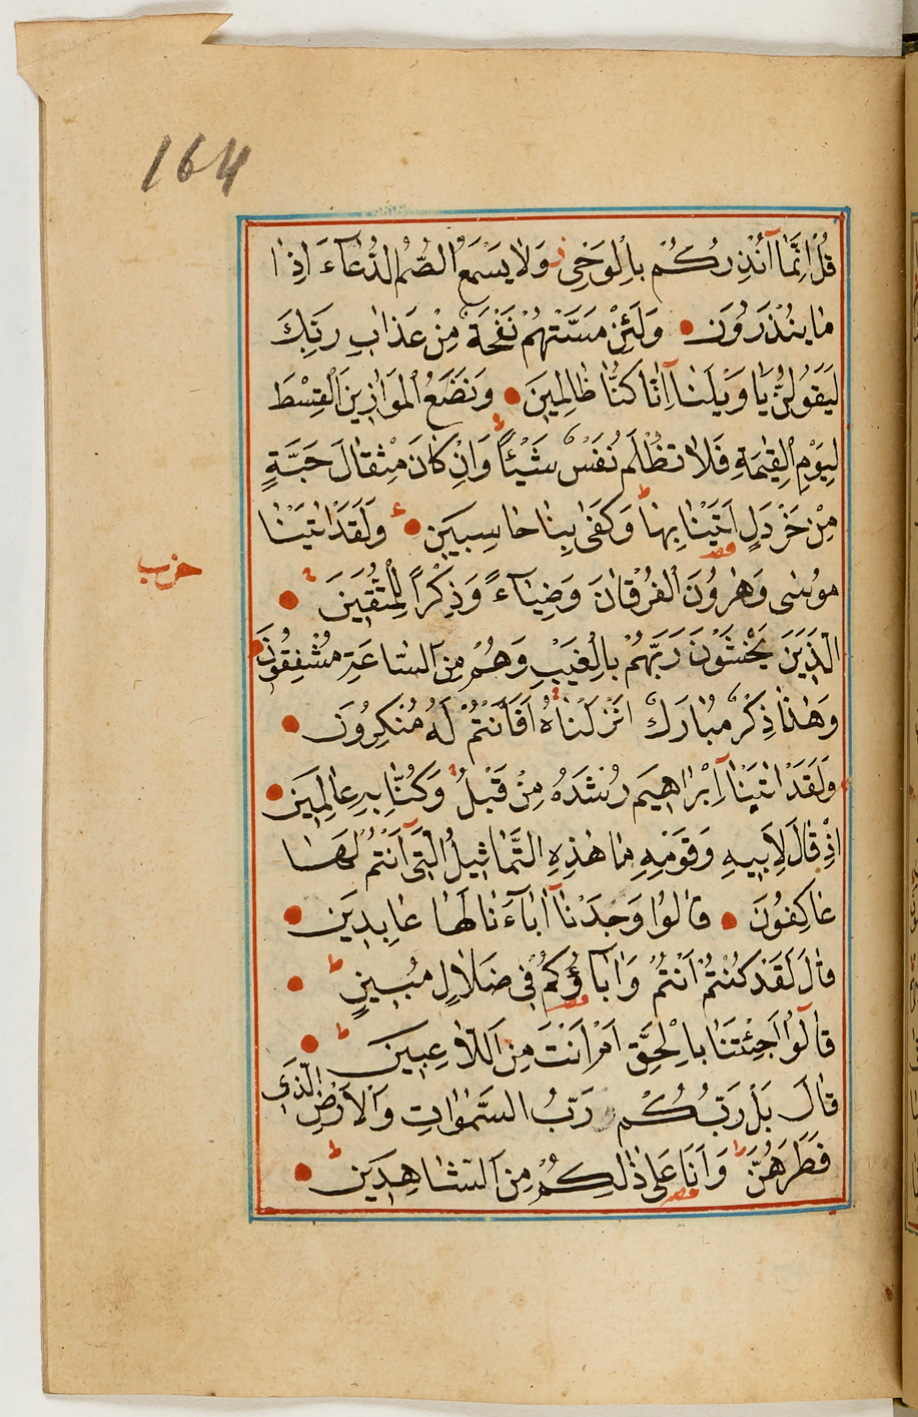 164
قُلْ اِنَّمَٓا اُنْذِرُكُمْ بِالْوَحْيِ ز وَلَا يَسْمَعُ الصُّمُّ الدُّعَٓاءَ اِذَا
مَا يُنْذَرُونَ وَلَئِنْ مَسَّتْهُمْ نَفْحَةٌ مِنْ عَذَابِ رَبِّكَ
لَيَقُولُنَّ يَا وَيْلَنَٓا اِنَّا كُنَّا ظَالِمِينَ وَنَضَعُ الْمَوَازِينَ الْقِسْطَ
لِيَوْمِ الْقِيٰمَةِ فَلَا تُظْلَمُ نَفْسٌ شَيْئًا وَاِنْ كَانَ مِثْقَالَ حَبَّةٍ
مِنْ خَرْدَلٍ اَتَيْنَا بِهَا ط وَكَفٰى بِنَا حَاسِبِينَ ع وَلَقَدْ اٰتَيْنَا
حزب
مُوسٰى وَهٰرُونَ الْفُرْقَانَ وَضِيَٓاءً وَذِكْرًا لِلْمُتَّقِينَ
الَّذِينَ يَخْشَوْنَ رَبَّهُمْ بِالْغَيْبِ وَهُمْ مِنَ السَّاعَةِ مُشْفِقُونَ
وَهٰذَا ذِكْرٌ مُبَارَكٌ اَنْزَلْنَاهُ اَفَاَنْتُمْ لَهُ مُنْكِرُونَ
وَلَقَدْ اٰتَيْنَٓا اِبْرَاهِيمَ رُشْدَهُ مِنْ قَبْلُ وَكُنَّا بِهِ عَالِمِينَ
اِذْ قَالَ لِاَبِيهِ وَقَوْمِهِ مَا هٰذِهِ التَّمَاثِيلُ الَّتِٓي اَنْتُمْ لَهَا
عَاكِفُونَ قَالُوا وَجَدْنَٓا اٰبَٓاءَنَا لَهَا عَابِدِينَ
قَالَ لَقَدْ كُنْتُمْ اَنْتُمْ وَاٰبَٓاؤُكُمْ فِي ضَلَالٍ مُبِينٍ ط
قَالُٓوا اَجِئْتَنَا بِالْحَقِّ اَمْ اَنْتَ مِنَ اللَّاعِبِينَ ط
قَالَ بَلْ رَبُّكُمْ رَبُّ السَّمٰوَاتِ وَالْاَرْضِ الَّذِي
فَطَرَهُنَّ وَاَنَا عَلٰى ذٰلِكُمْ مِنَ الشَّاهِدِينَ ط